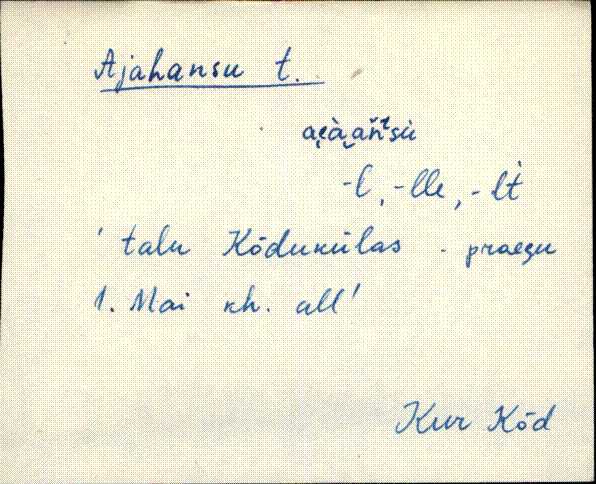 Ajahansu t.
ai̯àa̮ǹťsù
-l, -lle, -lt
' talu Kõdukülas - praegu
1. Mai kh. all'
Kur Kõd